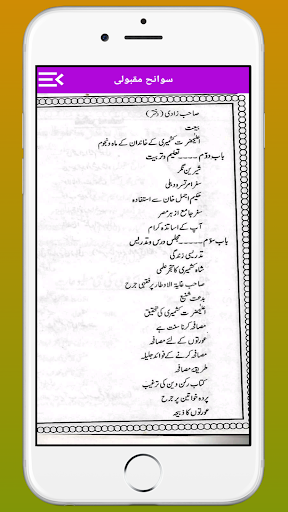 سوانح مقبولی
صاحب زادی (دختر)
بیعت
اعلیٰحضرت کشمیری کے خاندان کے ماہ و نجوم
باب دوم ۔۔۔۔۔ تعلیم و تربیت
شیرین نگر
سفر امرتسر و دہلی
حکیم اجمل خان سے استفادہ
سفر جامع ازہر مصر
آپ کے اساتذہ کرام
باب سوم ۔۔۔۔ مجلس درس و تدریس
تدریسی زندگی
شاہ کشمیری کا تبحر علمی
صاحب غایۃ الاوطار پر فقہی جرح
بدعت شنیع
اعلیٰحضرت کشمیری کی تحقیق
مصافحہ کرنا سنت ہے
عورتوں کے لئے مصافحہ
مصافحہ کرنے کے فوائد جلیلہ
طریقہ مصافحہ
کتاب رکن دین کی ترغیب
پردہ خواتین پر جرح
عورتوں کا ذبیحہ